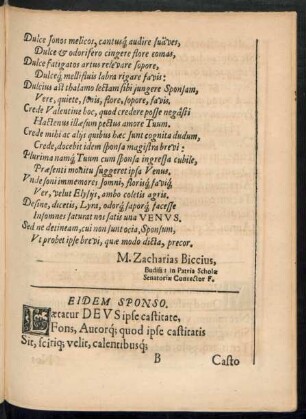 Dulce sonos melicos, cantusq́; audire süaveis,
Dulce & odorifero cingere flore comas,
Dulce fatigatos artus relevare sopore,
Dulceq́; mellifluis labra rigare favis:
Dulcius ast thalamo lectam sibi jungere Sponsam,
Vere, quiete, sonis, flore, sopore, favis.
Crede Valentine hoc, quod credere posse negásti
Hactenus illæsum pectus amore Tuum.
Crede mihi ac aliis quibus hæc sunt cognita dudum,
Crede, docebit idem sponsa magistra brevi:
Plurima namq́; Tuum cum sponsa ingressa cubile,
Præsenti monitu suggeret ipsa Venus.
Vnde soni immemores somni, florisq́; favíq́;
Ver, velut Elysys, ambo coletis agris.
Desine, dicetis, Lyra, odorq́; saporq́; facesse
Insomnes saturat nos satis una VENVS.
Sed ne detineam, cui non sunt ocia, Sponsum,
Vt probet ipse brevi, quæ modo dicta, precor.
M. Zacharias Biccius,
Budiss: in Patria Scholæ
Senatoriæ Conrector F.
EIDEM SPONSO.
Lætatur DEVS ipse castitate,
Fons, Autorq́; quod ipse castitatis
Sit, sciriq́; velit, calentibusq́;
B Casto